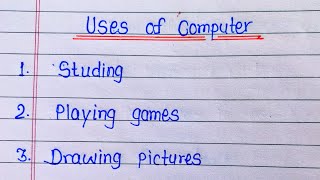 Uses of Computer
1. Studing
2. Playing games
3. Drawing pictures